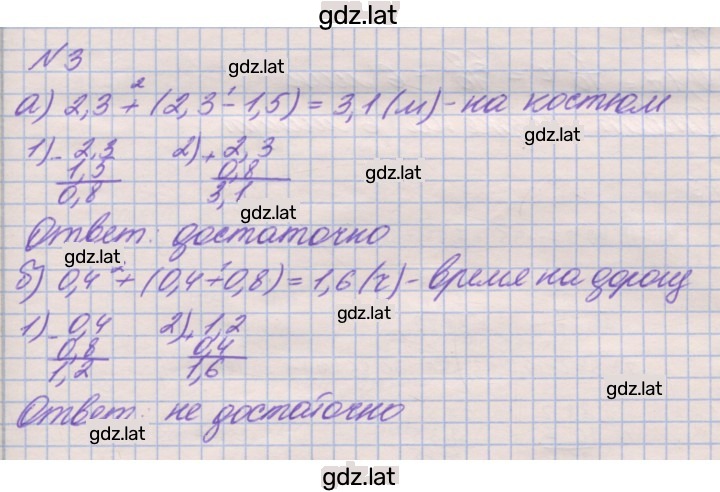 gdz.lat
№ 3
gdz.lat
а) 2,3 +² (2,3 -¹ 1,5) = 3,1 (м) - на костюм
gdz.lat
1) - 2,3    2) + 2, 3
1,5    0,8
gdz.lat
0,8    3,1
gdz.lat
Ответ: достаточно
gdz.lat
б) 0,4 +² (0,4 +¹ 0,8) = 1,6 (ч) - время на дорогу
gdz.lat
1) - 0,4    2) + 1,2
0,8    0,4
1,2    1,6
gdz.lat
Ответ: не достаточно
gdz.lat
gdz.lat